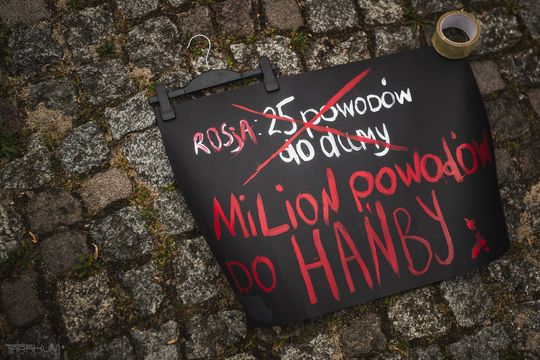 ROSJA: 25 powodów
do dumy
MiLION powodów
DO HAŃBY
TARAKUM